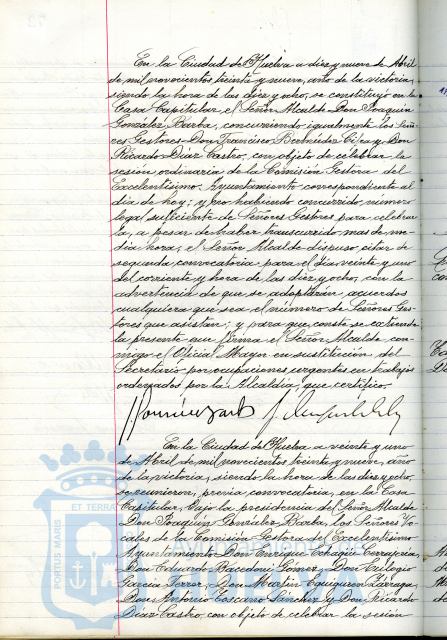 En la Ciudad de Huelva a diez y nueve de Abril
de mil novecientos treinta y nueve, año de la victoria,
siendo la hora de las diez y ocho, se constituyó en la
Casa Capitular, el Señor Alcalde Don Joaquin
González Barba, concurriendo igualmente los Seño-
res Gestores Don Francisco Bermúdez y Don
Ricardo Diaz Castro, con objeto de celebrar la
sesión ordinaria de la Comisión Gestora del
Excelentísimo Ayuntamiento correspondiente al
dia de hoy; y no habiendo concurrido número
legal suficiente de Señores Gestores para celebrar
la, a pesar de haber transcurrido mas de me-
dia hora, el Señor Alcalde dispuso citar de
segunda convocatoria para el dia veinte y uno
del corriente y hora de las diez y ocho, con la
advertencia de que se adoptarán acuerdos
cualquiera que sea el número de Señores Ges-
tores que asistan; y para que conste se extiende
la presente que firma el Señor Alcalde con-
migo el Oficial Mayor en sustitución del
Secretario por ocupaciones urgentes en trabajos
ordenados por la Alcaldía, que certifico.
En la Ciudad de Huelva a veinte y uno
de Abril de mil novecientos treinta y nueve, año
de la victoria, siendo la hora de las diez y ocho,
se reunieron, previa convocatoria, en la Casa
Capitular, bajo la presidencia del Señor Alcalde
Don Joaquin González Barba, los Señores Vo-
cales de la Comisión Gestora del Excelentísimo
Ayuntamiento Don Enrique
Don Eduardo Gómez, Don
García Don Martin
Don Antonio Toscano Sánchez y Don Ricardo
Diaz Castro, con objeto de celebrar la sesión
PORTUS MARIS ET TERRAE